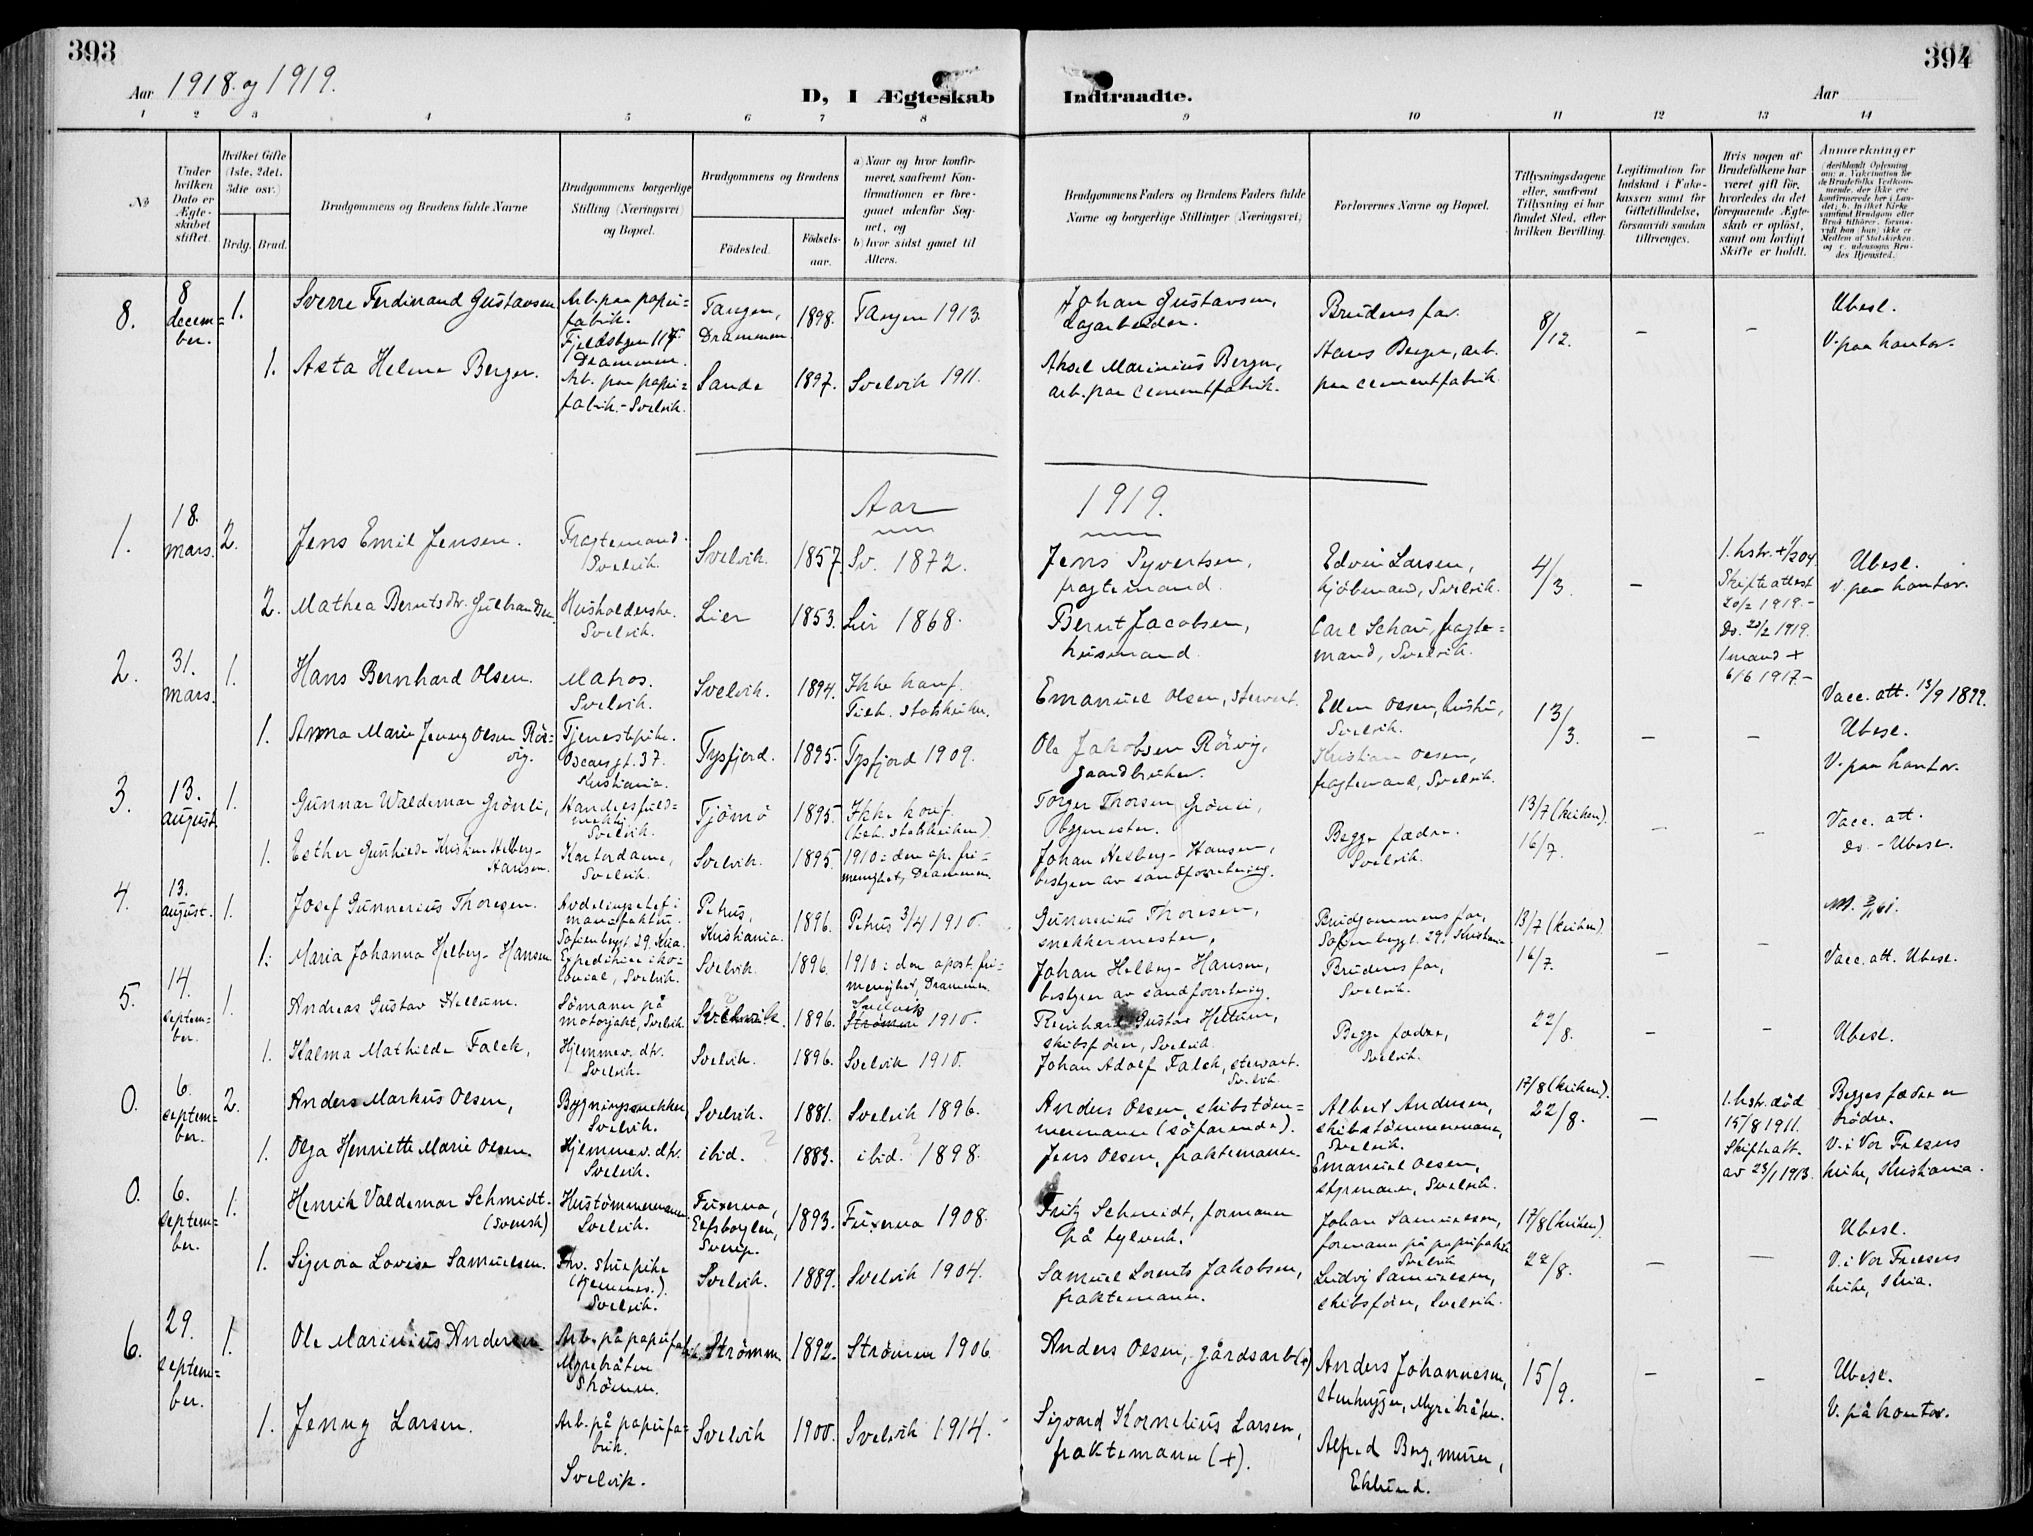 393
394
Aar 1918. og 1919.
D, I Ægteskab Indtraadte.
Aar
1 2 3 4 5 6 7 8 9 10 11 12 13 14
No
Under hvilken Dato er Ægteskabet stiftet.
Hvilket Gifte (1ste, 2det, 3die osv.)
Brdg. Brud.
Brudgommens og Brudens fulde Navne
Brudgommens borgerlige Stilling (Næringsvei) og Bopæl.
Brudgommens og Brudens
Fødested. Fødselsaar.
a) Naar og hvor konfirmeret, saafremt Konfirmationen er foregaaet udenfor Sognet, og
b) hvor sidst gaaet til Alters.
Brudgommens Faders og Brudens Faders fulde Navne og borgerlige Stillinger (Næringsvei)
Forlovernes Navne og Bopæl.
Tillysningsdagene eller, saafremt Tillysning ei har fundet Sted, efter hvilken Bevilling.
Legitimation for Indskud i Enkekassen samt for Giftetilladelse, forsaavidt saadan tiltrænges.
Hvis nogen af Brudefolkene har været gift før, hvorledes da det foregaaende Ægteskab er opløst, samt om lovligt Skifte er holdt.
Anmærkninger
8. 8 decem=ber. 1. Sverre Ferdinand Gustavsen Arb. paa papirfabrik. Drammen. Tangen, Drammen. 1898. Tangen 1913. Johan Gustavsen, Brudens far. 8/12. – – Ubesl. V. paa kontor.
1. Asta Helene Berger. Arb. paa papir=fabrik. – Svelvik. Sande 1897. Svelvik 1911. Aksel Marinius Berger, arb. paa cementfabrik. Hans Berger, arb. paa cementfabrik.
Aar 1919.
1. 18. mars. 2. Jens Emil Jensen. Fragtemand. Svelvik. Svelvik. 1857. Sv. 1872. Jens Syvertsen, fragtemand. Edvin Larsen, kjøbmand, Svelvik. 4/3. – Skifteattest 20/2 1919. – Ubesl. V. paa kontor.
2. Mathea Berntsdtr. Gulbrandsen Husholderske. Svelvik. Lier 1853. Lier 1868. Bernt Jacobsen, husmand. Carl Schau, fragte=mand, Svelvik. do. 1 mand + 6/6 1917. –
2. 31. mars. 1. Hans Bernhard Olsen. Matros. Svelvik. Svelvik. 1894. Ikke konf. Tilh. statskirken. Emanuel Olsen, stewart. Ellen Olsen, hustru, Svelvik. 13/3. – – Vacc. att. 13/9 1899. Ubesl.
1. Anna Marie Jenny Olsen Rör=vig. Tjenestepike. Oscarsgt. 37. Kristiania. Tysfjord. 1895. Tysfjord 1909. Ole Jakobsen Rörvig, gaardbruker. Kristian Olsen, fragtemand, Svelvik. V. paa kontor.
3. 13. august. 1. Gunnar Waldemar Grönli, Svelvik. Tjömö 1895. Ikke konf. Torger Thorsen Grönli, byggmester. Begge fædre. Svelvik. 13/7 (kirken). 16/7. – – Vacc. att.
1. Esther Gunhilda Kristine Helberg-Hansen. Kontordame, Svelvik. Svelvik. 1895 1910 i den ap. fri=menighet, Drammen. Johan Helberg-Hansen, bestyrer av sandforretning. do. – Ubesl.
4. 13. august. 1. Josef Gunnerius Thoresen. Avdelingschef i manufaktur. Sofienberggt 29, Kria. Petrus, Kristiania. 1896. Petrus 3/4 1910. Gunnerius Thoresen, snekkermester. Brudgommens far, Sofienberggt. 29, Kristiania 13/7 (kirken)
1. Maria Johanna Helberg-Hansen Svelvik. Svelvik. 1896. 1910 i den apost. fri=menighet, Drammen. Johan Helberg-Hansen, bestyrer av sandforretning. Brudens far, Svelvik. 16/7. – – Vacc. att. Ubesl.
5. 14. septem=ber. 1. Andreas Gustav Hellum. Sömann på motorjakt, Svelvik. Svelvik 1896. Svelvik 1910. Reinhard Gustav Hellum, skibsförer, Svelvik. Begge fædre, Svelvik. 22/8. – – Ubesl.
1. Halma Mathilde Falck, Hjemmev. dtr. Svelvik. Svelvik. 1896. Svelvik 1910. Johan Adolf Falck, stewart. Svelvik.
0. 6. septem=ber. 2. Anders Markus Olsen, Bygningssnekker, Svelvik. Svelvik. 1881. Svelvik 1896. Anders Olsen, skibstöm=mermann (söfarende). Albert Andersen, skibstömmermann, Svelvik. 17/8 (kirken). 22/8. – 1. hstr. död 15/8 1911. Skifteatt. av 23/1 1913. Begges fædre er brödre.
1. Olga Henriette Marie Olsen. Hjemmev. dtr. Svelvik. ibid. ? 1883. ibid. ? 1898. Jens Olsen, fraktemann. Emanuel Olsen, styrmann, Svelvik. V. i Vor Frelsers kirke, Kristiania.
0. 6. septem=ber. 1. Henrik Valdemar Schmidt. (svensk) Hustömmermann Svelvik. Fuxerna, Elfsborglen, Sverige. 1893. Fuxerna 1908. Fritz Schmidt, formann Johan Samuelsen, formann på papirfabrik Svelvik 17/8 (kirken). Ubesl.
1. Signora Lovise Samuelsen. Svelvik. Svelvik. 1889. Svelvik 1904. Samuel Lorents Jakobsen, fraktemann. Ludvig Samuelsen, skibsförer, Svelvik. 22/8. – – V. i Vor Frelsers kirke, Kria.
6. 29. septem=ber. 1. Ole Marinius Andersen Arb. på papirfabrik, Myrebråten Strömm. Strömm. 1892. Strömm 1906. Anders Olsen, gårdsarb (+) Anders Johannesen, stenhugger, Myrebråten. 15/9. – – Ubesl. V. på kontor.
1. Jenny Larsen. Arb. på papirfa=brik. Svelvik. Svelvik 1900. Svelvik 1914. Sigvard Kornelius Larsen, fraktemann (+). Alfred Berg, murer, Eklund.